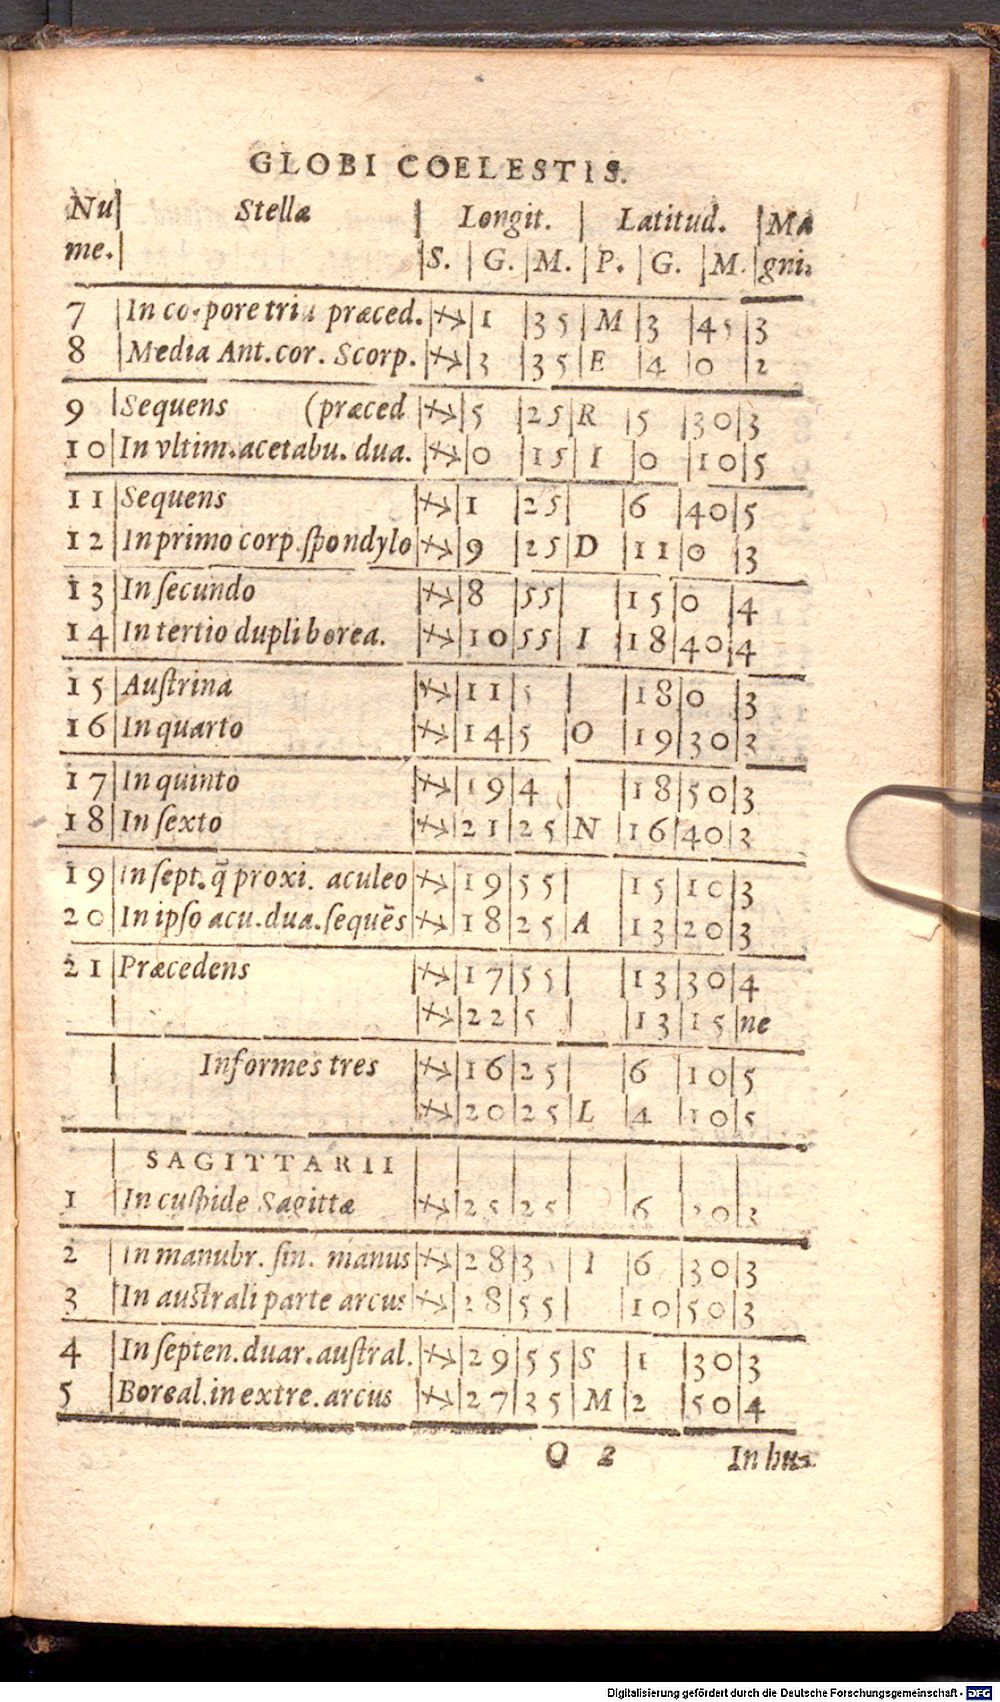 GLOBI COELESTIS.
Nu | Stellæ | Longit. | Latitud. | Ma
me. | S. | G. | M. | P. | G. | M. | gni.
7 | In corpore triū præced. | ♐ | 1 | 35 | M | 3 | 45 | 3
8 | Media Ant. cor. Scorp. | ♐ | 3 | 35 | E | 4 | 0 | 2
9 | Sequens (præced | ♐ | 5 | 25 | R | 5 | 30 | 3
10 | In vltim. acetabu. dua. | ♐ | 0 | 15 | I | 0 | 10 | 5
11 | Sequens | ♐ | 1 | 25 | | 6 | 40 | 5
12 | In primo corp. ſpondylo | ♐ | 9 | 25 | D | 11 | 0 | 3
13 | In ſecundo | ♐ | 8 | 55 | | 15 | 0 | 4
14 | In tertio dupli borea. | ♐ | 10 | 55 | I | 18 | 40 | 4
15 | Auſtrina | ♐ | 11 | 5 | | 18 | 0 | 3
16 | In quarto | ♐ | 14 | 5 | O | 19 | 30 | 3
17 | In quinto | ♐ | 19 | 4 | | 18 | 50 | 3
18 | In ſexto | ♐ | 21 | 25 | N | 16 | 40 | 3
19 | In ſept. q̃ proxi. aculeo | ♐ | 19 | 55 | | 15 | 10 | 3
20 | In ipſo acu. dua. ſequēs | ♐ | 18 | 25 | A | 13 | 20 | 3
21 | Præcedens | ♐ | 17 | 55 | | 13 | 30 | 4
| | ♐ | 22 | 5 | | 13 | 15 | ne
| Informes tres | ♐ | 16 | 25 | | 6 | 10 | 5
| | ♐ | 20 | 25 | L | 4 | 10 | 5
| SAGITTARII
1 | In cuſpide Sagittæ | ♐ | 25 | 25 | | 6 | 20 | 3
2 | In manubr. ſin. manus | ♐ | 28 | 3 | I | 6 | 30 | 3
3 | In auſtrali parte arcus | ♐ | 28 | 55 | | 10 | 50 | 3
4 | In ſepten. duar. auſtral. | ♐ | 29 | 55 | S | 1 | 30 | 3
5 | Boreal. in extre. arcus | ♐ | 27 | 35 | M | 2 | 50 | 4
O 2 In hu-
Digitalisierung gefördert durch die Deutsche Forschungsgemeinschaft - DFG